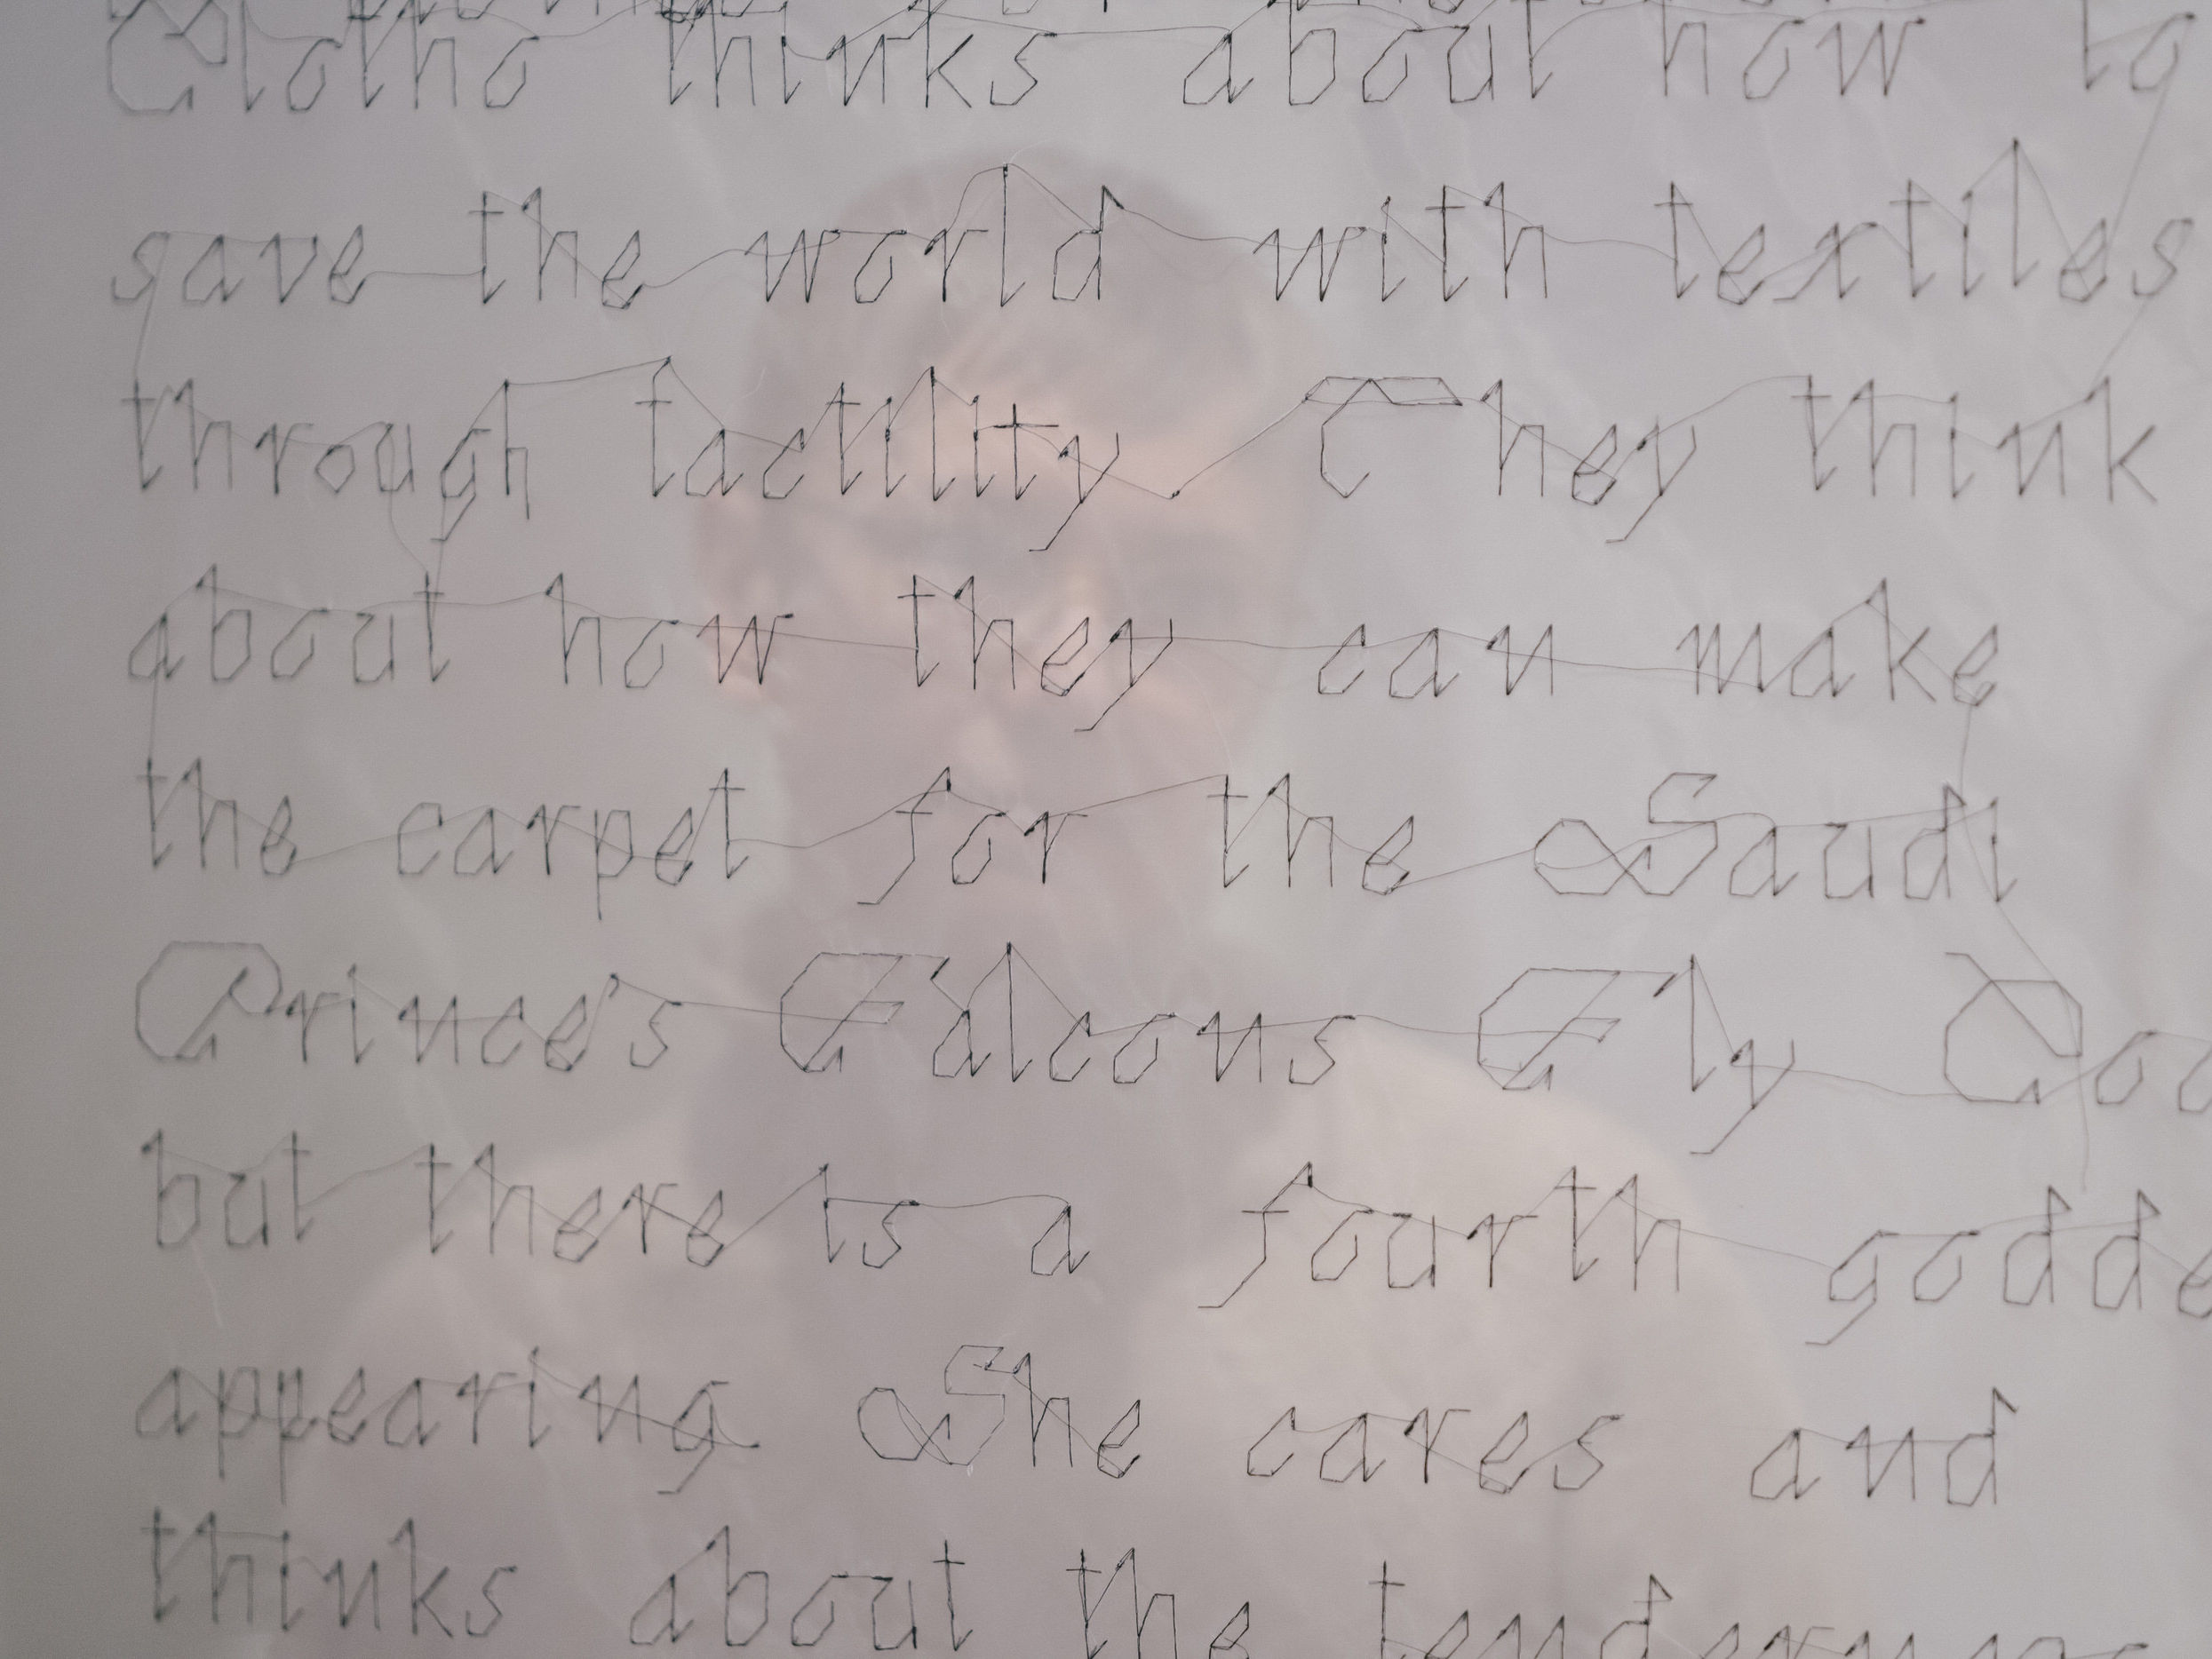 Clotho thinks about how to
save the world with textiles
through tactility. They think
about how they can make
the carpet for the Saudi
Prince's Falcons Fly
but there is a fourth
appearing She cares and
thinks about the